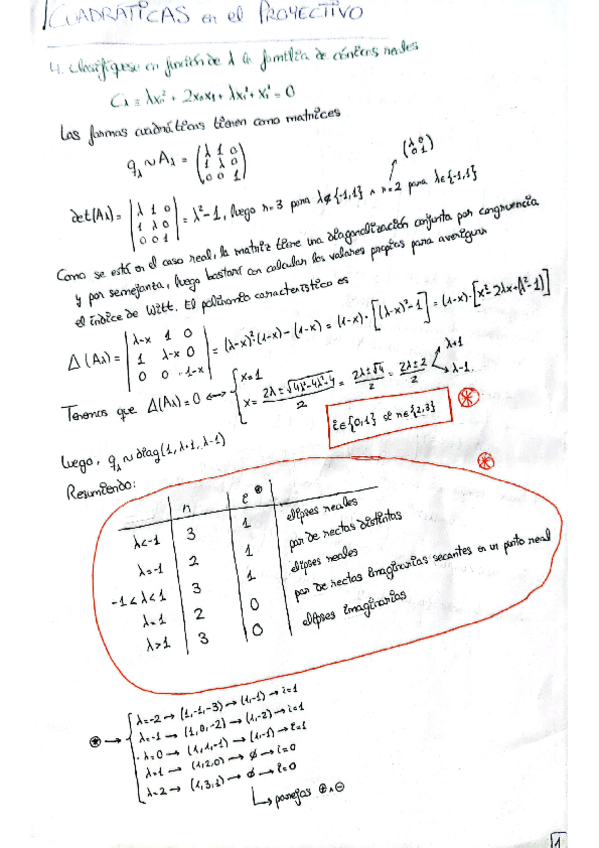 CUADRÁTICAS en el PROYECTIVO
4. Clasifíquese en función de λ la familia de cónicas reales
Cλ ≡ λx₀² + 2x₀x₁ + λx₁² + x₂² = 0
Las formas cuadráticas tienen como matrices
qλ ~ Aλ = (λ 1 0 / 1 λ 0 / 0 0 1)
(λ 0 / 0 1)
det(Aλ) = |λ 1 0 / 1 λ 0 / 0 0 1| = λ²-1, luego n=3 para λ∉{-1,1} ∧ n=2 para λ∈{-1,1}
Como se está en el caso real, la matriz tiene una diagonalización conjunta por congruencia
y por semejanza, luego bastará con calcular los valores propios para averiguar
el índice de Witt. El polinomio característico es
Δ(Aλ) = |λ-x 1 0 / 1 λ-x 0 / 0 0 1-x| = (λ-x)²(1-x) - (1-x) = (1-x)·[(λ-x)²-1] = (1-x)·[x²-2λx+(λ²-1)]
Tenemos que Δ(Aλ)=0 ⟺ { x=1
x = (2λ ± √4λ²-4λ²+4)/2 = (2λ±√4)/2 = (2λ±2)/2 → λ+1
→ λ-1
i∈{0,1} si n∈{2,3} ⊛
Luego, qλ ~ diag(1, λ+1, λ-1)
Resumiendo: ⊛
n i ⊛
λ<-1 3 1 elipses reales
λ=-1 2 1 par de rectas distintas
-1<λ<1 3 1 elipses reales
λ=1 2 0 par de rectas imaginarias secantes en un punto real
λ>1 3 0 elipses imaginarias
⊛ → { λ=-2 → (1,-1,-3) → (1,-1) → i=1
λ=-1 → (1,0,-2) → (1,-2) → i=1
λ=0 → (1,1,-1) → (1,-1) → i=1
λ=1 → (1,2,0) → ø → i=0
λ=2 → (1,3,1) → ø → i=0
↳ parejas ⊕∧⊖
1